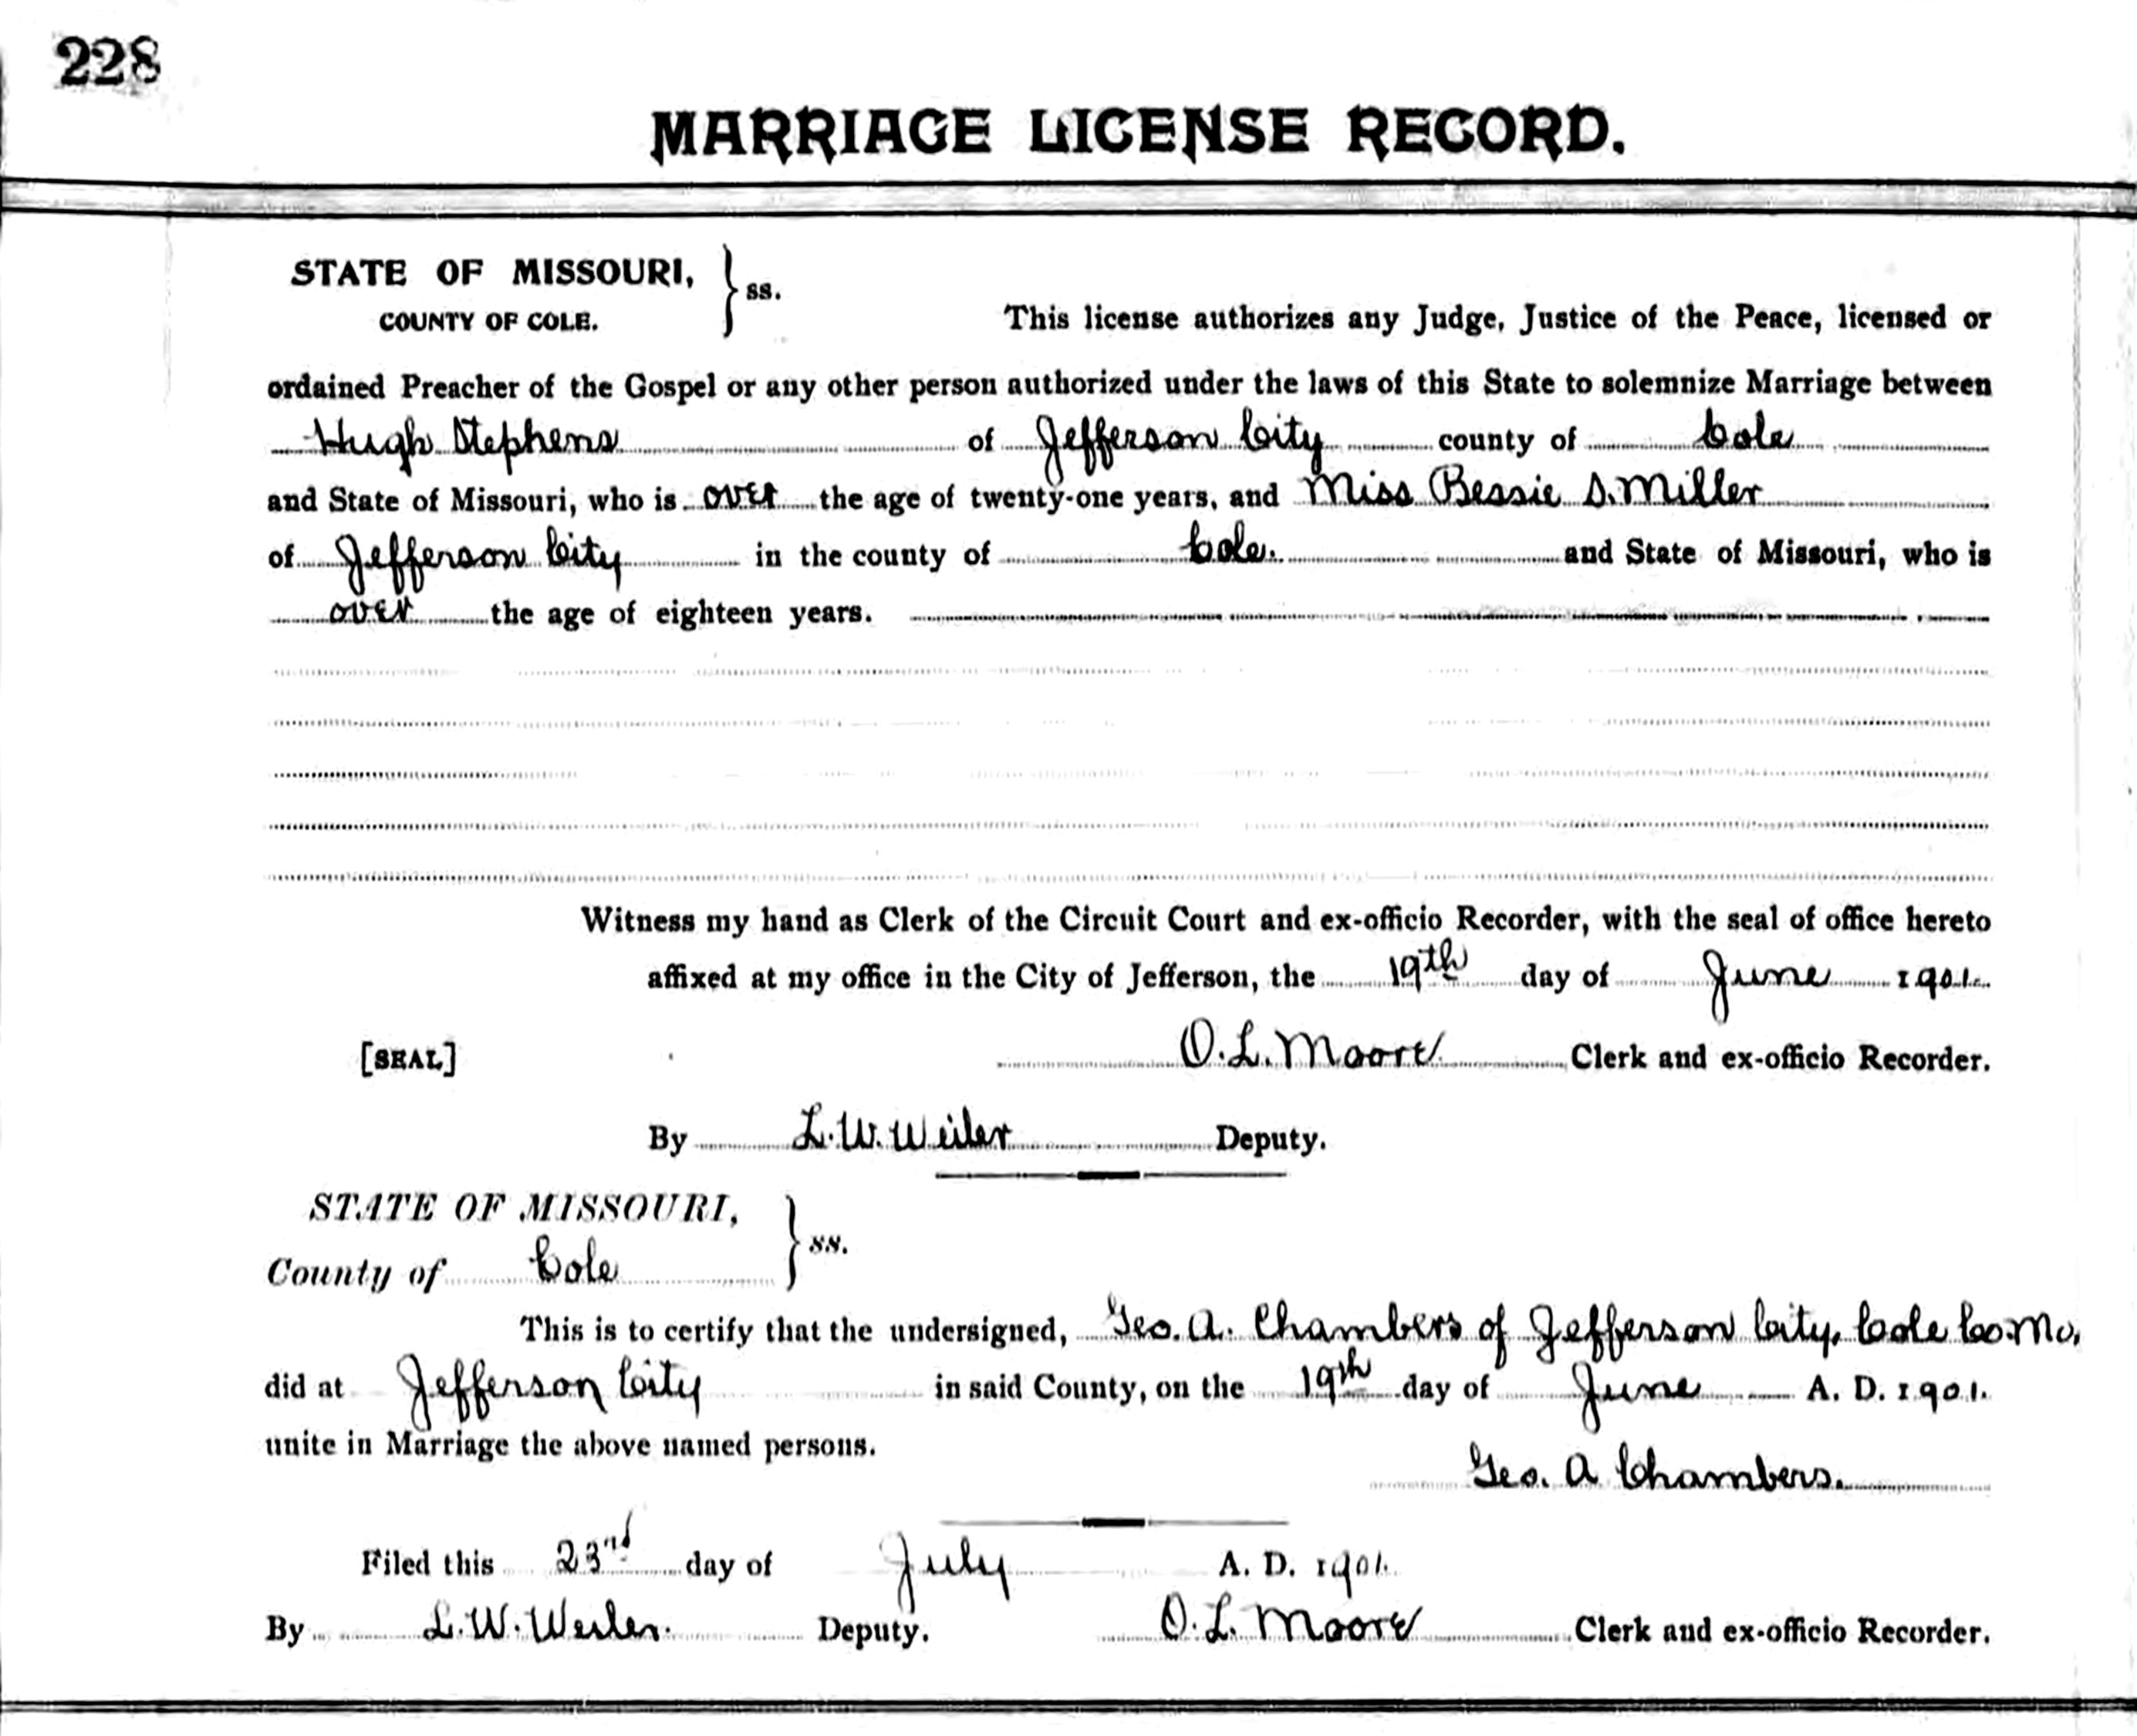 228
MARRIAGE LICENSE RECORD.
STATE OF MISSOURI,
COUNTY OF COLE. } ss.
This license authorizes any Judge, Justice of the Peace, licensed or
ordained Preacher of the Gospel or any other person authorized under the laws of this State to solemnize Marriage between
Hugh Stephens of Jefferson City county of Cole
and State of Missouri, who is over the age of twenty-one years, and Miss Bessie S. Miller
of Jefferson City in the county of Cole. and State of Missouri, who is
over the age of eighteen years.
Witness my hand as Clerk of the Circuit Court and ex-officio Recorder, with the seal of office hereto
affixed at my office in the City of Jefferson, the 19th day of June 1901.
[SEAL] O. L. Moore Clerk and ex-officio Recorder.
By L. W. Weiler Deputy.
STATE OF MISSOURI,
County of Cole } ss.
This is to certify that the undersigned, Geo. A. Chambers of Jefferson City, Cole Co. Mo,
did at Jefferson City in said County, on the 19th day of June A. D. 1901.
unite in Marriage the above named persons.
Geo. A Chambers.
Filed this 23rd day of July A. D. 1901.
By L. W. Weiler. Deputy. O. L. Moore Clerk and ex-officio Recorder.